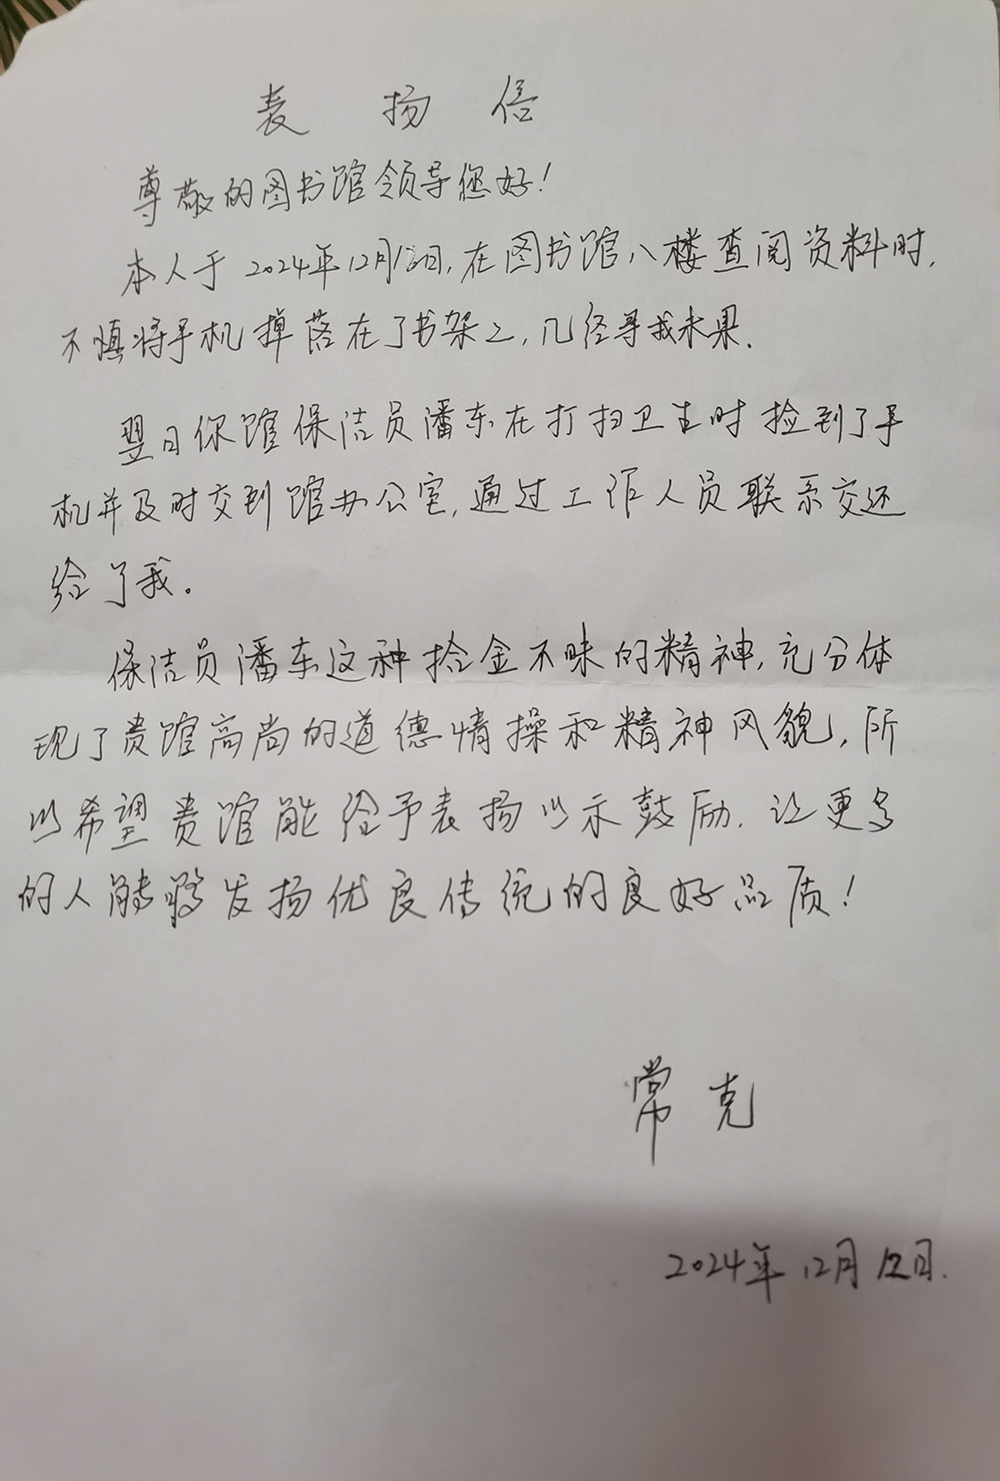 表扬信
尊敬的图书馆领导您好!
本人于2024年12月10日,在图书馆八楼查阅资料时,
不慎将手机掉落在了书架上,几经寻找未果.
翌日你馆保洁员潘东在打扫卫生时捡到了手
机并及时交到馆办公室,通过工作人员联系交还
给了我。
保洁员潘东这种拾金不昧的精神,充分体
现了贵馆高尚的道德情操和精神风貌,所
以希望贵馆能给予表扬以示鼓励.让更多
的人能够发扬优良传统的良好品质!
常克
2024年12月12日.